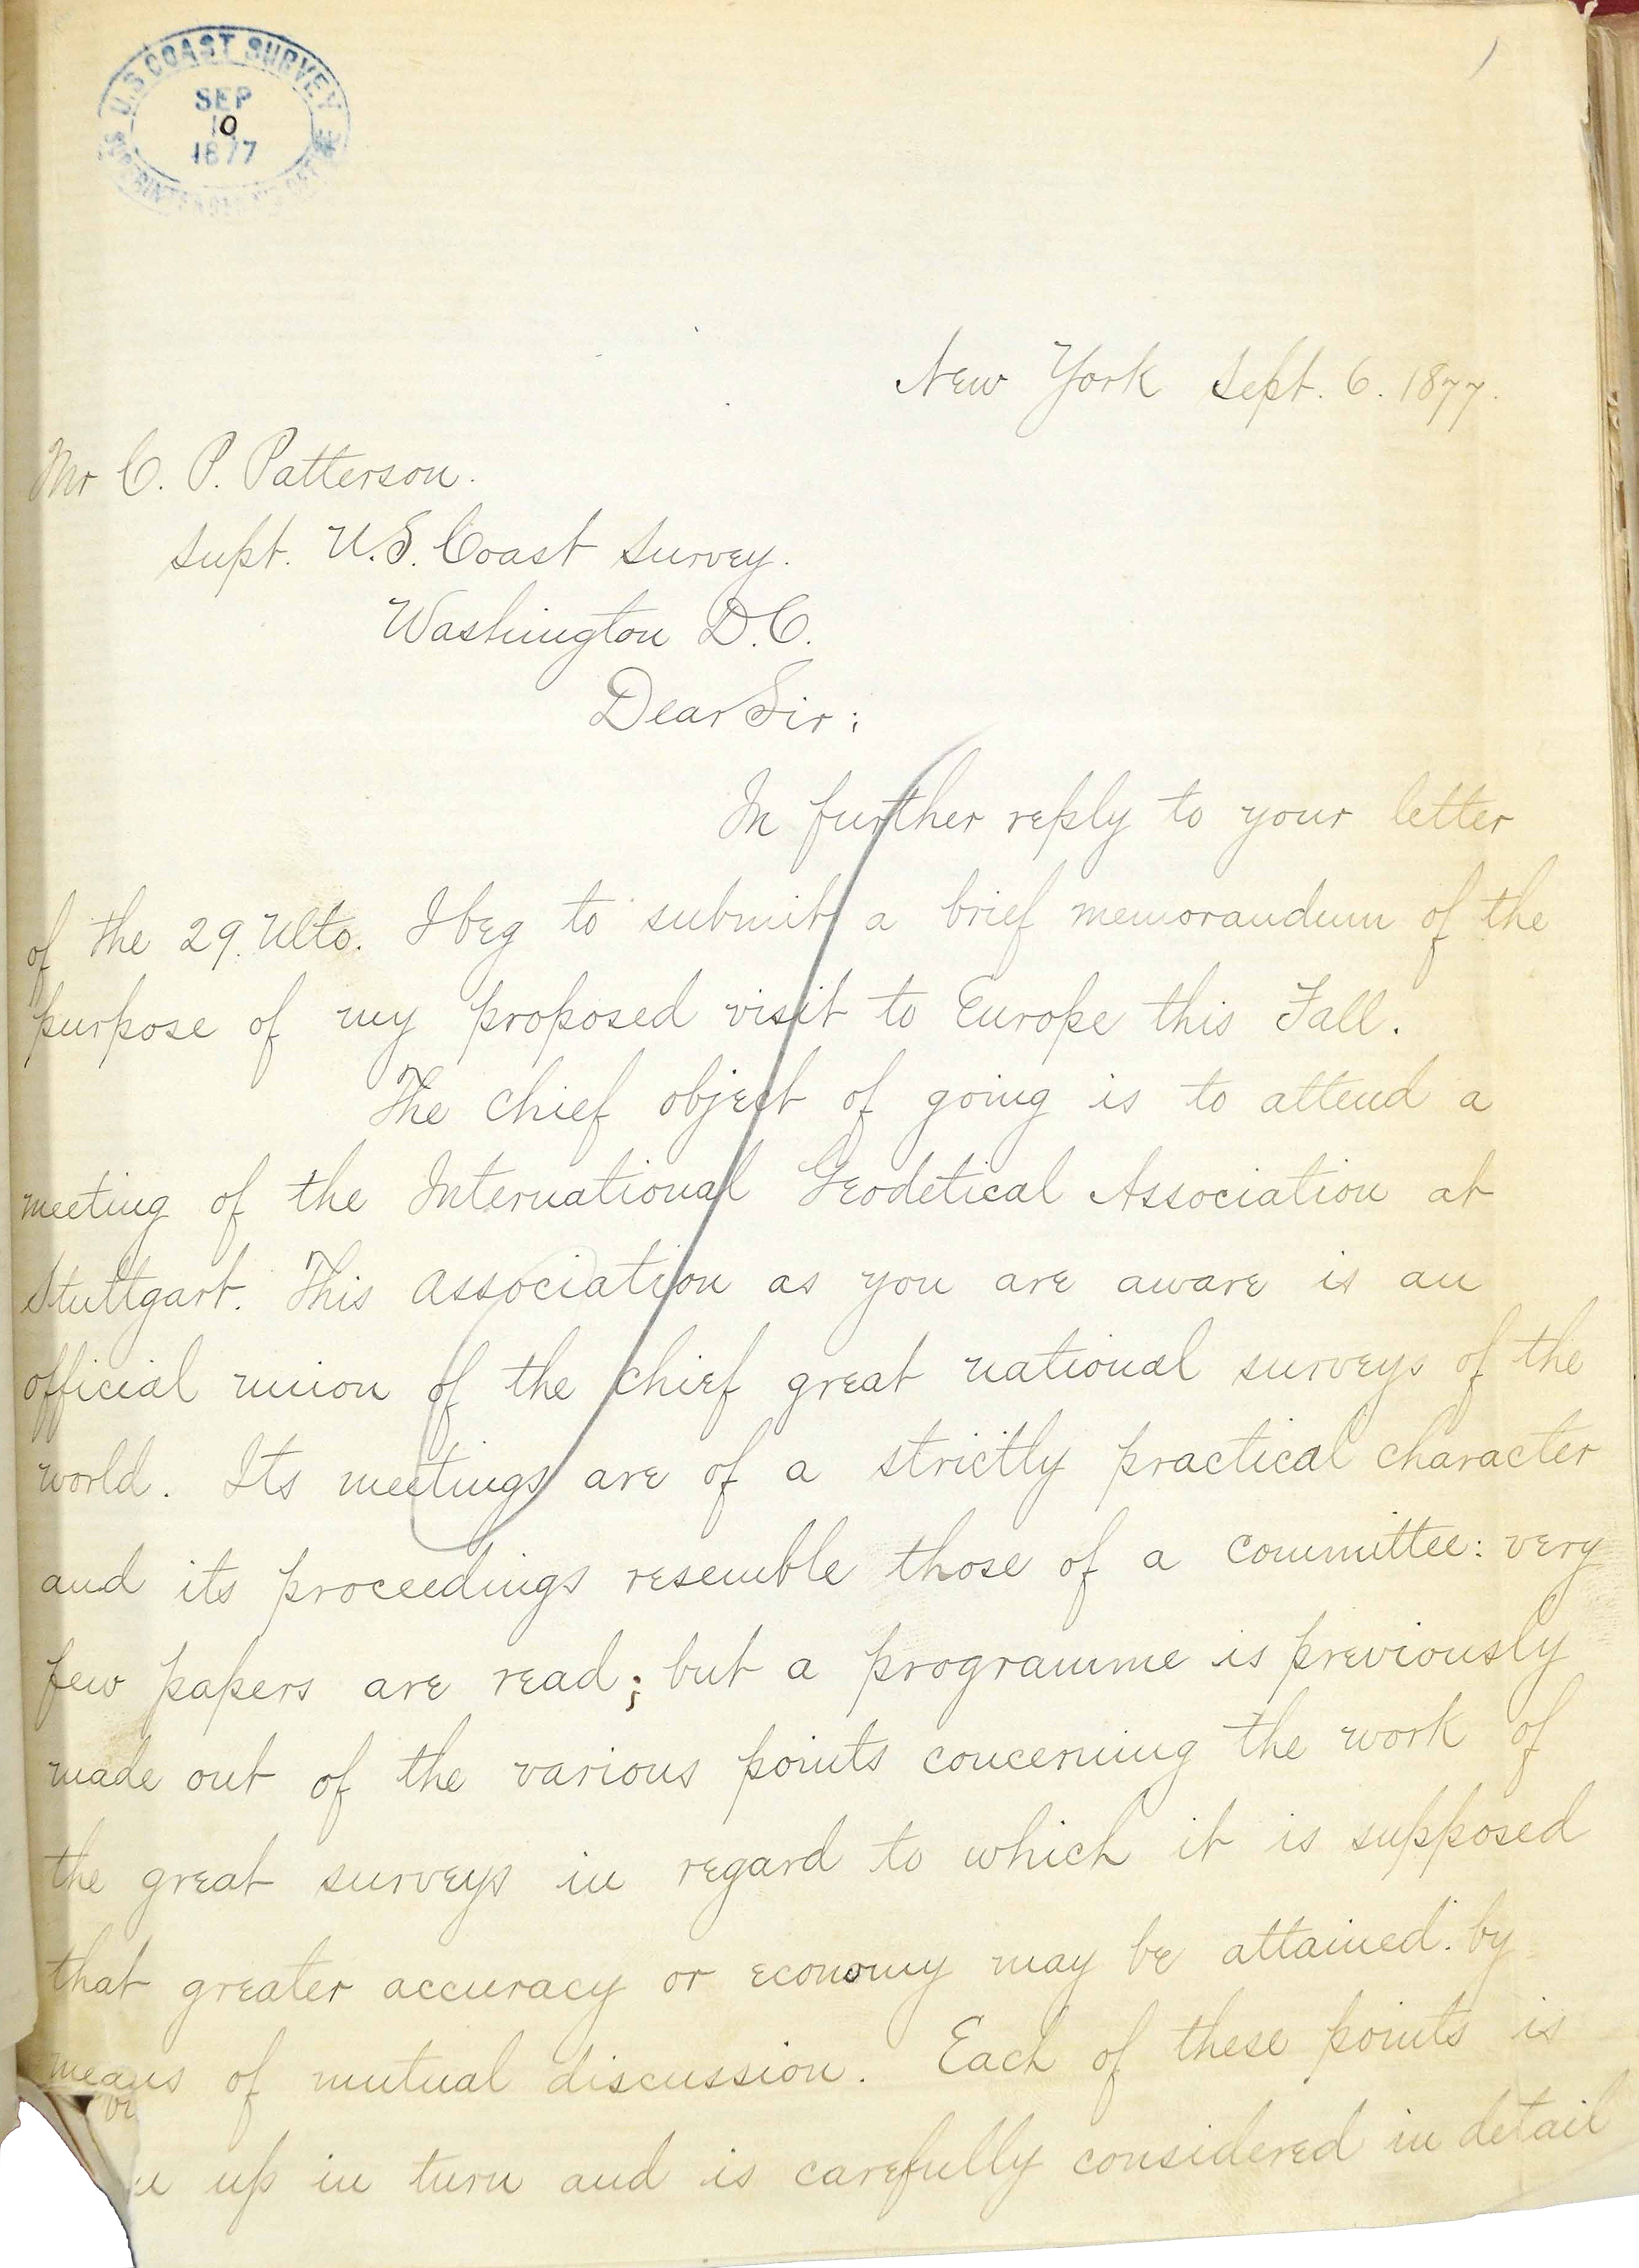 U.S. COAST SURVEY
SEP
10
1877
1
New York Sept. 6. 1877.
Mr C. P. Patterson.
Supt. U.S. Coast Survey.
Washington D.C.
Dear Sir:
In further reply to your letter
of the 29. Ulto. I beg to submit a brief memorandum of the
purpose of my proposed visit to Europe this Fall.
The chief object of going is to attend a
meeting of the International Geodetical Association at
Stuttgart. This Association as you are aware is an
official union of the chief great national surveys of the
world. Its meetings are of a strictly practical character
and its proceedings resemble those of a committee: very
few papers are read; but a programme is previously
made out of the various points concerning the work of
the great surveys in regard to which it is supposed
that greater accuracy or economy may be attained by
means of mutual discussion. Each of these points is
up in turn and is carefully considered in detail